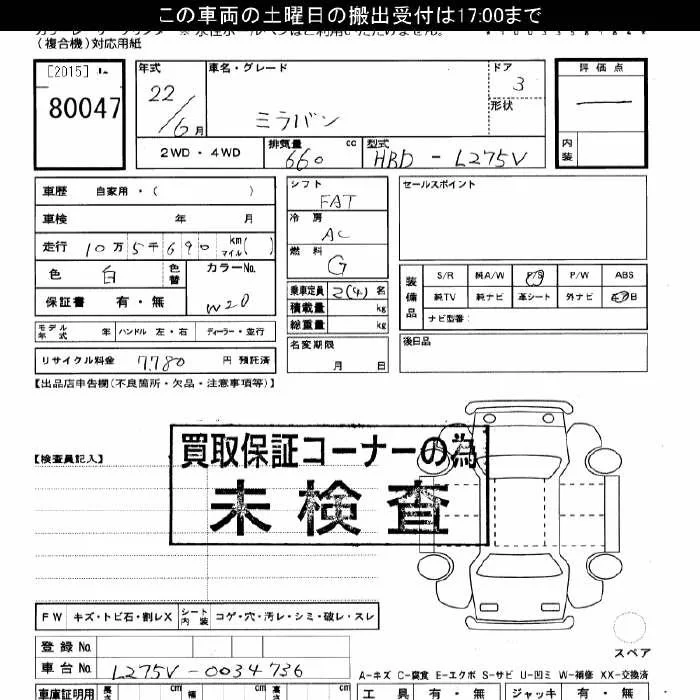 この車両の土曜日の搬出受付は17:00まで
(複合機)対応用紙
[2015]
80047
年式
22/6月
車名・グレード
ミラバン
ドア
3
形状
評価点
内装
2WD・4WD
排気量 660 cc
型式 HBD - L275V
車歴 自家用・( )
車検 年 月
走行 10万5千690 km マイル( )
色 白 色替
カラーNo. W20
保証書 有・無
モデル年式 年 ハンドル 左・右 ディーラー・並行
リサイクル料金 7,780 円 預託済
シフト
FAT
冷房
AC
燃料
G
乗車定員 2(4)名
積載量 kg
総重量 kg
名変期限
月 日
セールスポイント
装備品
S/R 純A/W P/S P/W ABS
純TV 純ナビ 革シート 外ナビ
ナビ型番:
後日品
【出品店申告欄(不良箇所・欠品・注意事項等)】
【検査員記入】
買取保証コーナーの為
未検査
FW キズ・トビ石・割レX シート内装 コゲ・穴・汚レ・シミ・破レ・スレ
スペア
登録No.
車台No. L275V-0034736
A-キズ C-腐食 E-エクボ S-サビ U-凹ミ W-補修 XX-交換済
車庫証明用 長さ cm 幅 cm 高さ cm
工具 有・無 ジャッキ 有・無